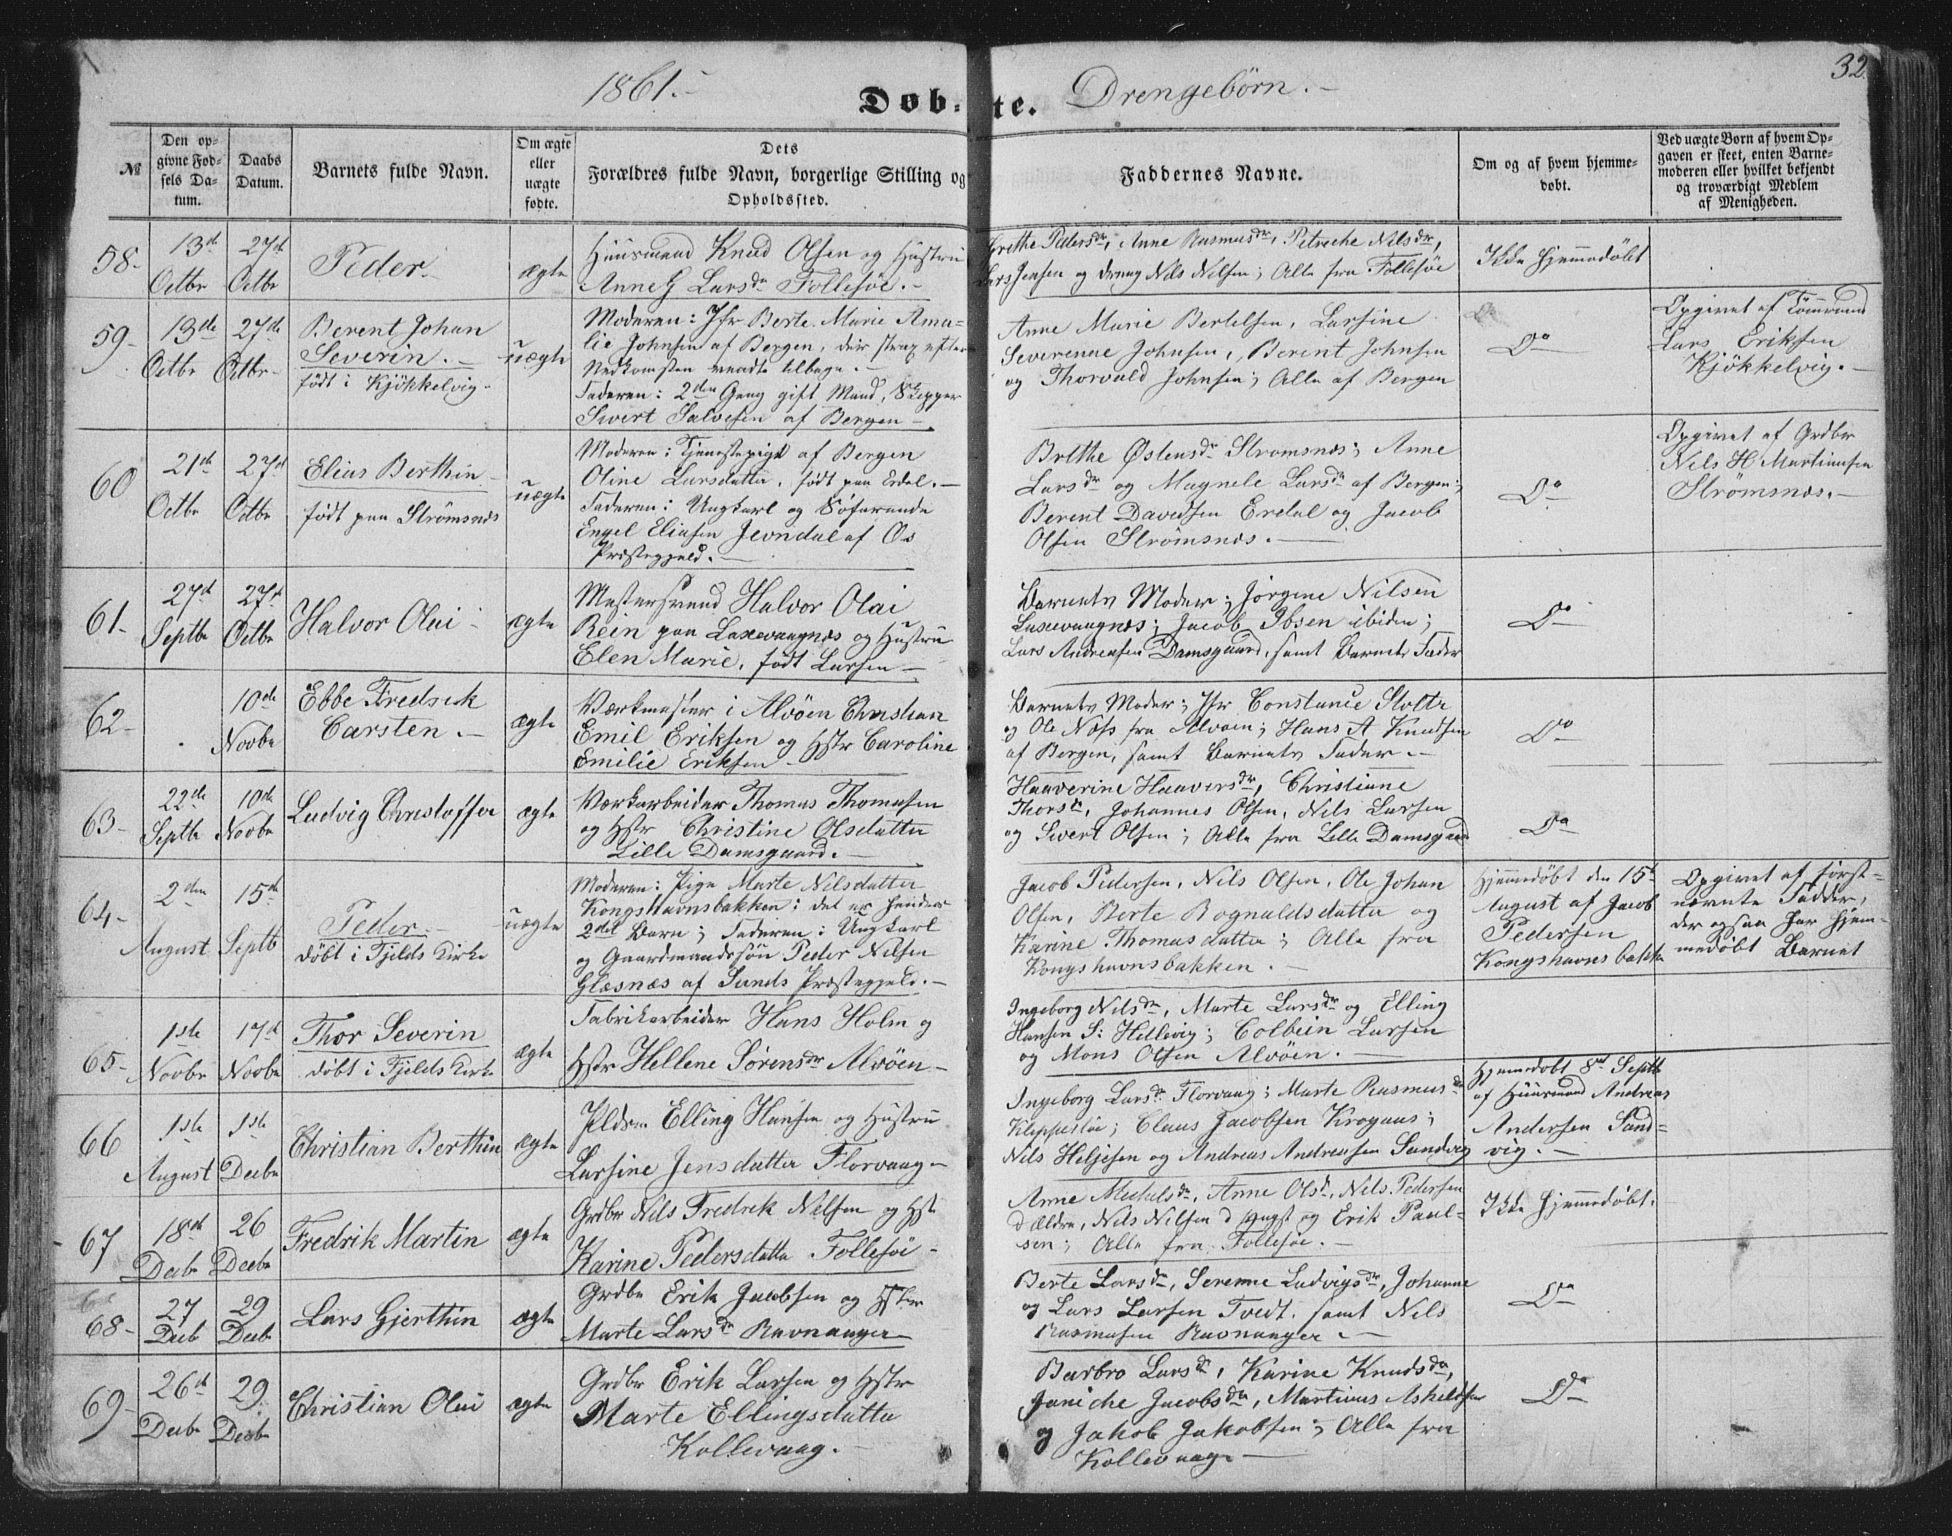 1861.-
Døb-te. Drengebørn.-
32
№
Den opgivne Fødsels Datum.
Daabs Datum.
Barnets fulde Navn.
Om ægte eller uægte fødte.
Dets Forældres fulde Navn, borgerlige Stilling og Opholdssted.
Faddernes Navne.
Om og af hvem hjemmedøbt.
Ved uægte Børn af hvem Opgaven er skeet, enten Barnemoderen eller hvilket bekjendt og troværdigt Medlem af Menigheden.
58-
13de Octbr
27de Octbr
Peder.
ægte
Huusmand Knud Olsen og Hustru
Anne G Larsdr Follesøe.-
Grethe Pedersdr, Anne Rasmusdr, Petriche Nilsdr,
Lars Jensen og dreng Nils Nilsen; Alle fra Follesøe
Ikke hjemmedøbt
59-
13de Octbr
27de Octbr
Berent Johan
Severin.-
født i Kjøkkelvig-
uægte
Moderen: Jfr Berte Marie Ama-
lie Johnsen af Bergen, der strax efter
Nedkomsten vendte tilbage.-
Faderen: 2den Gang gift Mand, Skipper
Sivert Salvesen af Bergen-
Anne Marie Bertelsen, Larsine
Severenne Johnsen, Berent Johnsen
og Thorvald Johnsen; Alle af Bergen
Do
Opgivet af Tømmermd
Lars Eriksen
Kjøkkelvig.-
60
21de Octbr
27de Octbr
Elias Berthin
født paa Strømsnes
uægte
Moderen: Tjenestepige af Bergen
Oline Larsdatter, født paa Erdal.-
Faderen: Ungkarl og Søfarende
Engel Eliasen Jevndal af Os
Præstegjeld.-
Brithe Østensdr Stromsnæs; Anne
Larsdr og Magnele Larsdr af Bergen;
Berent Davidsen Erdal og Jacob
Olsen Strømsnes.-
Do
Opgivet af Grdbr
Nils H Martinusen
Strømsnæs.-
61-
27d Septbr
27d Octbr
Halvor Olai-
ægte
Mestersvend Halvor Olai
Rein paa Laxevaagnæs og Hustru
Elen Marie, født Larsen-
Barnets Moder; Jørgine Nilsen
Laxevaagnæs; Jacob Ibsen ibiden;
Lars Andreasen Damsgaard, samt Barnets Fader
Do
62-
10de Novbr
Ebbe Fredrik
Carsten.-
ægte
Værkmester i Alvøen Christian
Emil Eriksen og Hstr Caroline
Emilie Eriksen-
Barnets Moder; Jfr Constance Stolte
og Ole Næss fra Alvøen; Hans A Knudsen
af Bergen, samt Barnets Fader.-
Do
63-
22de Septbr
10de Novbr
Ludvig Christoffer
ægte
Værkarbeider Thomas Thomasen
og Hstr Christine Olsdatter
Lille Damsgaard.-
Haaverine Haaversdr, Christiane
Thorsdr, Johannes Olsen, Nils Larsen
og Sivert Olsen; Alle fra Lille Damsgaard
Do
64-
2den August
15de Septb
Peder-
døbt i Fjelds Kirke
uægte
Moderen: Pige Marte Nilsdatter
Kongshavnsbakken: det er hendes
2det Barn; Faderen: Ungkarl
og Gaardmandssøn Peder Nilsen
Glæsnæs af Sunds Præstegjeld.-
Jacob Pedersen, Nils Olsen, Ole Johan
Olsen, Berte Rognaldsdatter og
Karine Thomasdatter; Alle fra
Kongshavnsbakken.-
Hjemmedøbt den 15d
August af Jacob
Pedersen
Kongshavnsbakke
Opgivet af først-
nævnte Fadder,
der ogsaa har hjem-
medøbt Barnet
65-
1ste Novbr
17de Novbr
Thor Severin
døbt i Fjelds Kirke
ægte
Fabrikarbeider Hans Holm og
Hstr Hellene Sørensdr Alvøen-
Ingeborg Nilsdr, Marte Larsdr og Elling
Hansen S: Hellevig; Colbein Larsen
og Mons Olsen Alvøen.-
66
1ste August
1ste Decbr
Christian Berthin
ægte
Pldsm Elling Hansen og Hustru
Larsine Jensdatter Florvaag-
Ingeborg Larsdr Florvaag; Marte Rasmusdr
Kleppestøe; Claus Jacobsen Krogaas;
Nils Heljesen og Andreas Andreasen Sandvig
Hjemmedøbt 8de Septb
af Huusmand Andreas
Andersen Sand-
vig.-
67
18de Decbr
26 Decbr
Fredrik Martin
ægte
Grdbr Nils Fredrik Nilsen og Hst
Karine Pedersdatter Follesøe-
Anne Mickelsdr, Anne Olsdr, Nils Pedersen
d ældre, Nils Nilsen d yngst og Erik Paul-
sen; Alle fra Follesøe.-
Ikke hjemmedøbt.
68-
27 Decb
29 Decb
Lars Gjerthin
ægte
Grdbr Erik Jacobsen og Hstr
Marte Larsdr Ravnanger
Berte Larsdr, Serenne Ludvigsdr, Johanne
og Lars Larsen Tvedt, samt Nils
Rasmusen Ravnanger.-
Do
69-
26d Decbr
29. Decbr
Christian Olai
ægte
Grdbr Erik Larsen og Hstr
Marte Ellingsdatter
Kollevaag.-
Barbro Larsdr, Karine Knudsdr,
Janiche Jacobsdr, Martinus Askeldsen
og Jakob Jakobsen; Alle fra
Kollevaag-
Do